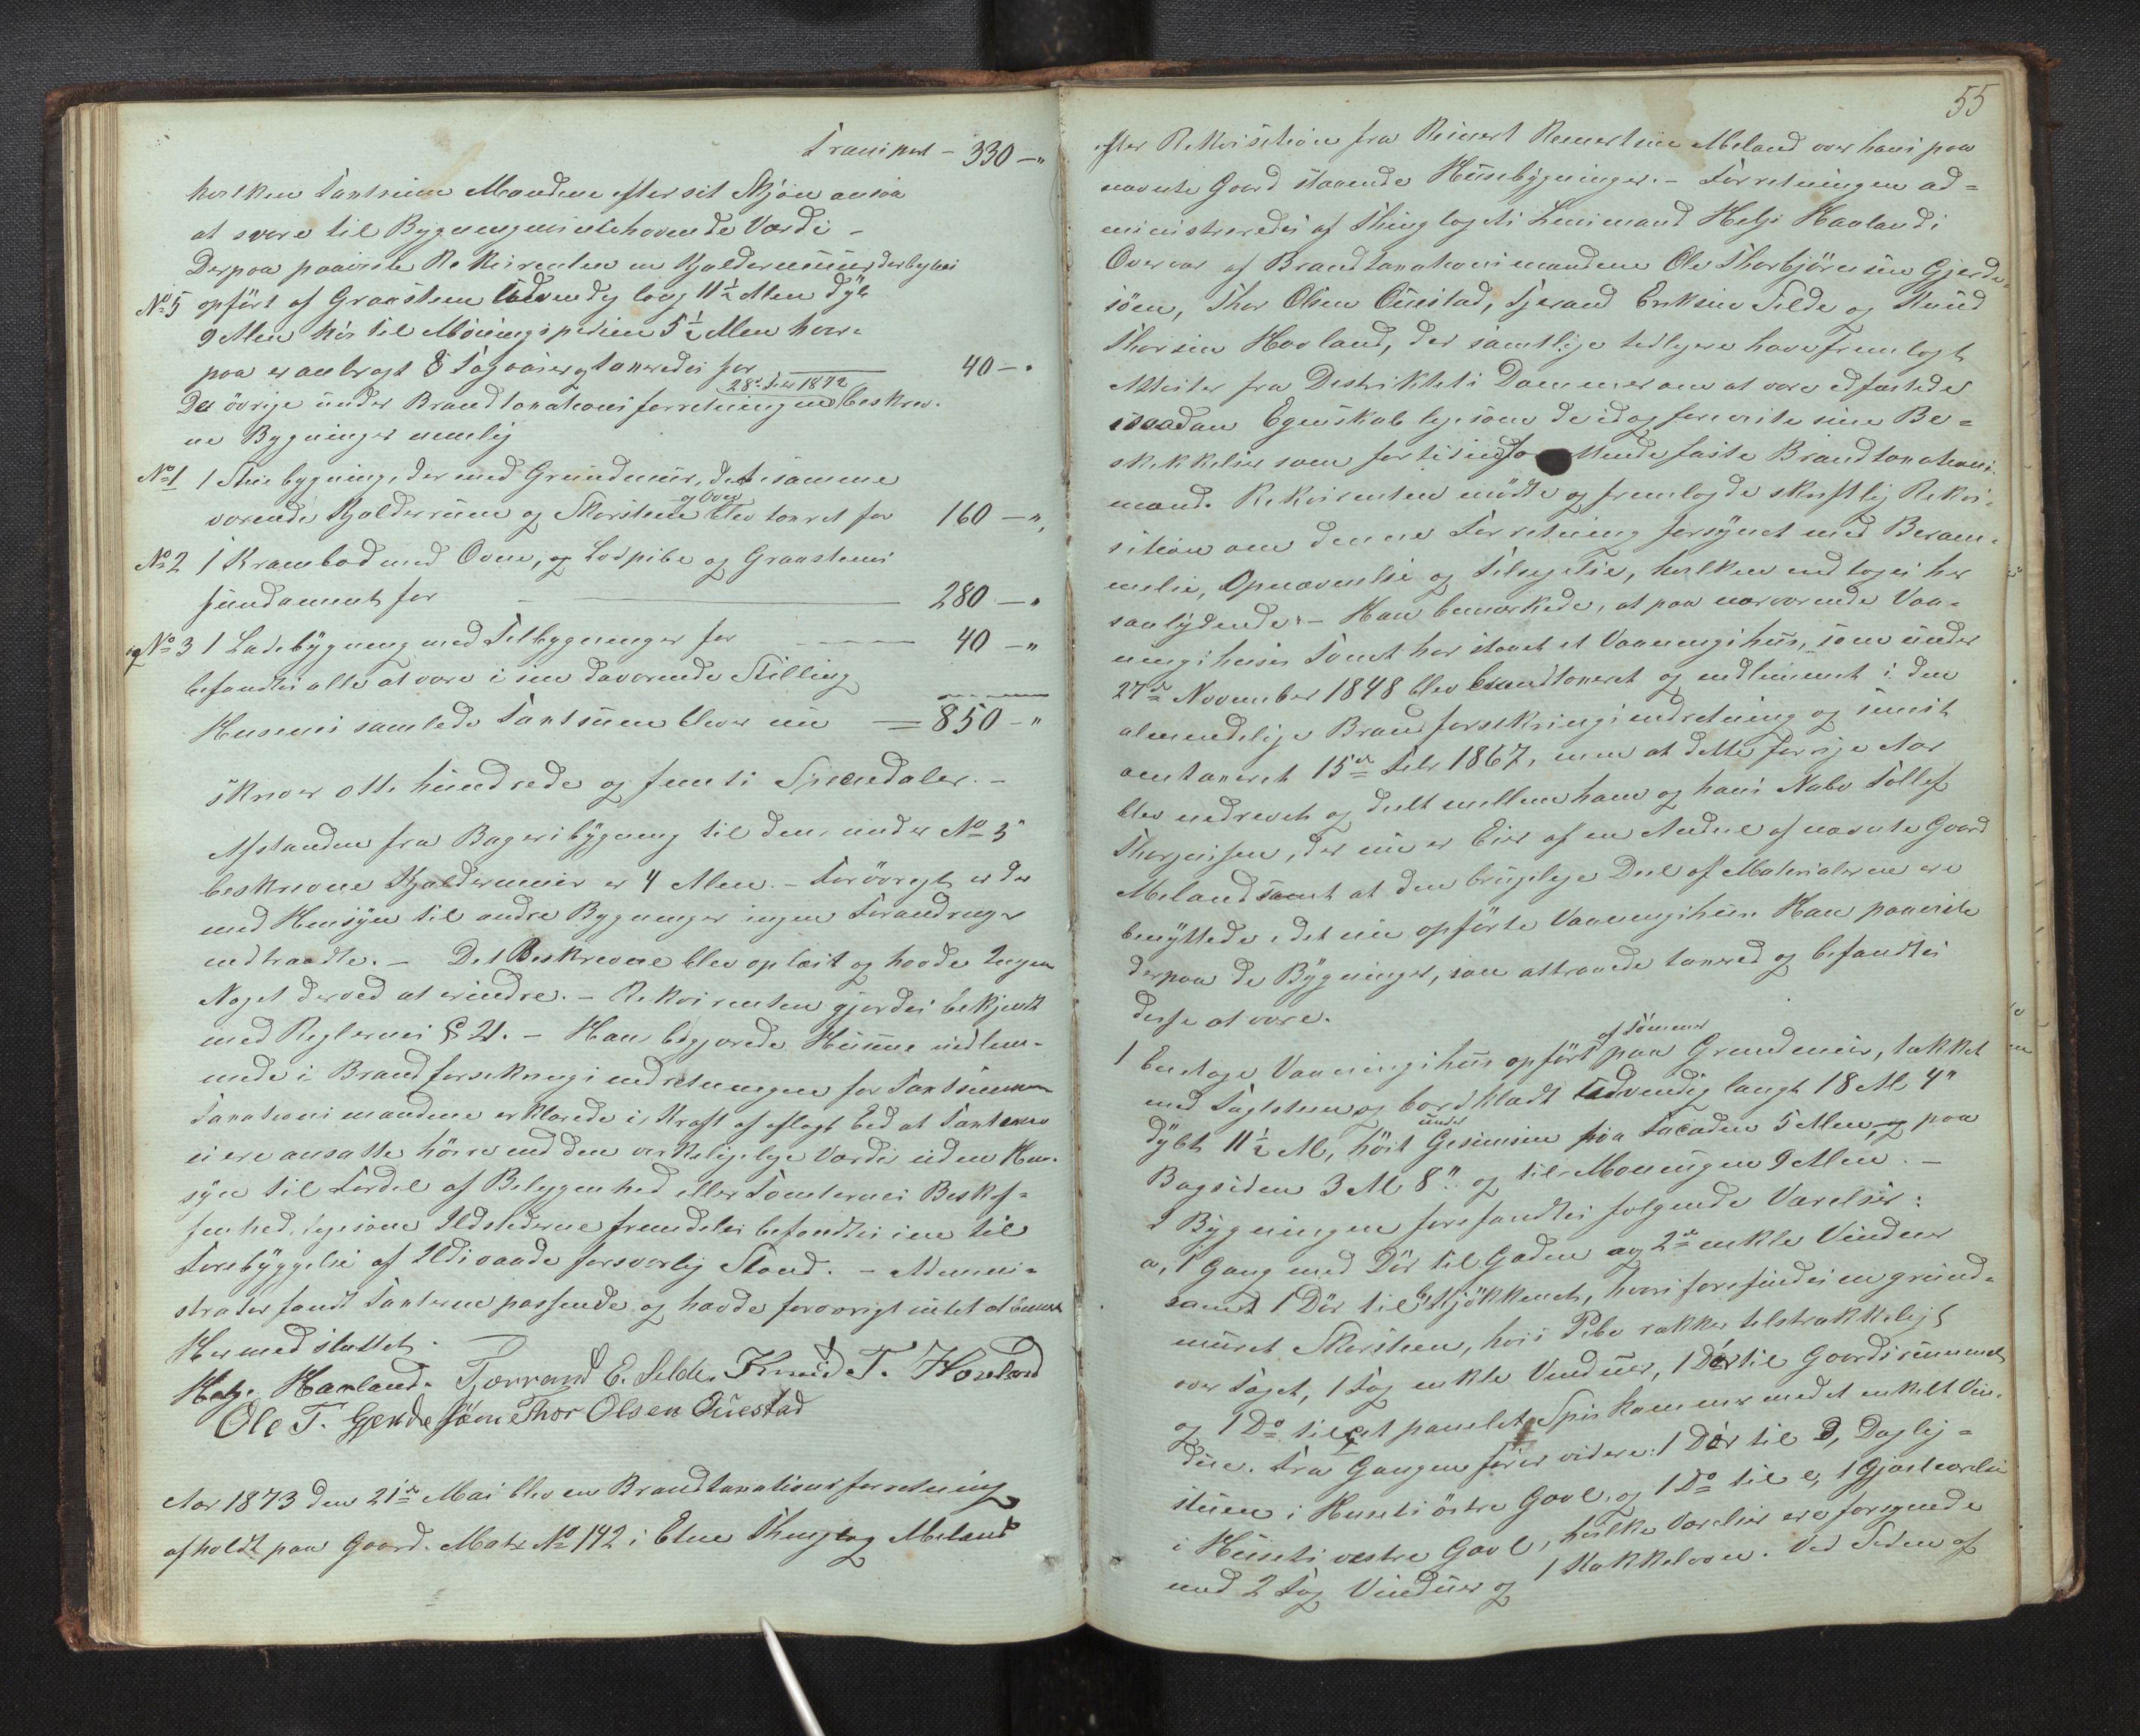 Transport - 330 - "
hvilken Taxtsum Mændene efter sit Skjøn ansaa
at svare til Bygningens ibehavende Værdi -
Derpaa paaviste Rekvirenten en Kjeldermuur, der
No 5 opført af Graasteen udvendig lang 11½ Alen dyb
9 Alen høi til Mønings 5½ Alen hvor-
paa er anbragt 8 Tag og taxeredes for 40 - "
De øvrige under Brandtaxationsforretningen 28de Febr 1872 beskrev-
ne Bygninger nemlig
No 1 1 Stuebygning, der med Grundmuur, det samme
værende Kjelderrum og Skorsteen og Ovn blev taxeret for 160 - "
No 2 1 Krambod med Ovne, og Lodpibe og Graasteens
fundament for 280 - "
og No 3 1 Ladebygning med Tilbygninger for 40 - "
befandtes alle at være i sin daværende Stilling
Husenes samlede Taxtsum bliver nu = 850 - "
skriver otte hundrede og femti Speciedaler. -
Afstanden fra Bageribygning til den under No 5
beskrevne Kjeldermuur er 4 Alen. - Forøvrigt er der
med Hensyn til andre Bygninger ingen Forandringer
indtraadte. - Det Beskrevne blev oplæst og havde Ingen
Noget derved at erindre. - Rekvirenten gjordes bekjendt
med Reglernes § 21. - Han begjærede Husene indlem-
mede i Brandforsikringsindretningen for Taxtsummen
Taxationsmændene erklærede i Kraft af aflagt Eed at Taxterne
ei ere ansatte høiere end den virkelige Værdi uden Hen-
syn til Fordel af Beliggenhed eller Tomternes Beskaf-
fenhed, ligesom Ildstederne fremdeles befandtes i en til
Forebyggelse af Ildsvaade forsvarlig Stand. - Admini-
strator fandt Taxterne passende og havde forøvrigt intet at bemærke
Hermed sluttet.
Helje Havland. Tjærrand E. Silde. Knud T. Hovland
Ole T. Gjerdesjøen Thor Olsen Ousstad
Aar 1873 den 21de Mai blev en Brandtaxationsforretning
afholdt paa Gaard. Matr No 142 i Etne Thinglag Meland
55
efter Rekvisition fra Reinert Reinertsen Meland over hans paa
nævnte Gaard staaende Huusebygninger. - Forretningen ad-
ministreredes af Thinglagets Lensmand Helje Havland i
Overvær af Brandtaxationsmændene Ole Thorbjørnsen Gjerde-
sjøen, Thor Olsen Ousstad, Tjerand Eriksen Silde og Knud
Thorsen Hovland, der samtlige tidligere have fremlagt
Attester fra Distriktets Dommer om at være edfæstede
i saadan Egenskab ligesom de idag foreviste sine Be-
skikkelser som for Tiden faste Brandtaxations-
mænd. Rekvirenten mødte og fremlagde skriftlig Rekvi-
sition om denne Forretning forsynet med Beram-
melse, Opnævnelse og Tilsigelse, hvilken indtages her
saalydende: - Han bemærkede, at paa nærværende Vaa-
ningshuses Tomt har staaet et Vaaningshus, som under
27de November 1848 blev brandtaxeret og indlemmet i den
almindelige Brandforsikringsindretning og sinist
omtaxeret 15de Febr 1867, men at dette forrige Aar
blev nedrevet og deelt mellem ham og hans Nabo Tollef
Thorgersen, der nu er Eier af en Andeel af nævnte Gaard
Meland samt at den brugelige Deel af Materialerne ere
benyttede i det nu opførte Vaaningshus. Han paaviste
derpaa de Bygninger, som attraaede taxered og befandtes
disse at være.
1 Enetages Vaaningshus opført af Tømmer paa Grundmuur, tækket
med Tagsteen og bordklædt udvendig langt 18 Al 4"
dybt 11½ Al, høit under Gesimsen paa Facaden 5 Alen, og paa
Bagsiden 3 Al 8" og til Møningen 9 Alen. -
I Bygningen forefandtes følgende Værelser:
a, 1 Gang med Dør til Gaden og 2de enkle Vinduer
samt 1 Dør til b, Kjøkkenet, hvori forefindes en grund-
muret Skorsteen, hvis Pibe rækker tilstrækkeligt
over Taget, 1 Fag enkle Vinduer, 1 Dør til Gaardsrummet
og 1 Do til c, et panelet Spiskammer med et enkelt Vin-
due. Fra Gangen fører videre: 1 Dør til d, Daglig-
stuen i Husets østre Gavl, og 1 Do til e, 1 Gjæsteværelse
i Husets vestre Gavl, hvilke Værelser ere forsynede
med 2 Fag Vinduer og 1 Kakkelovn. Ved Siden af